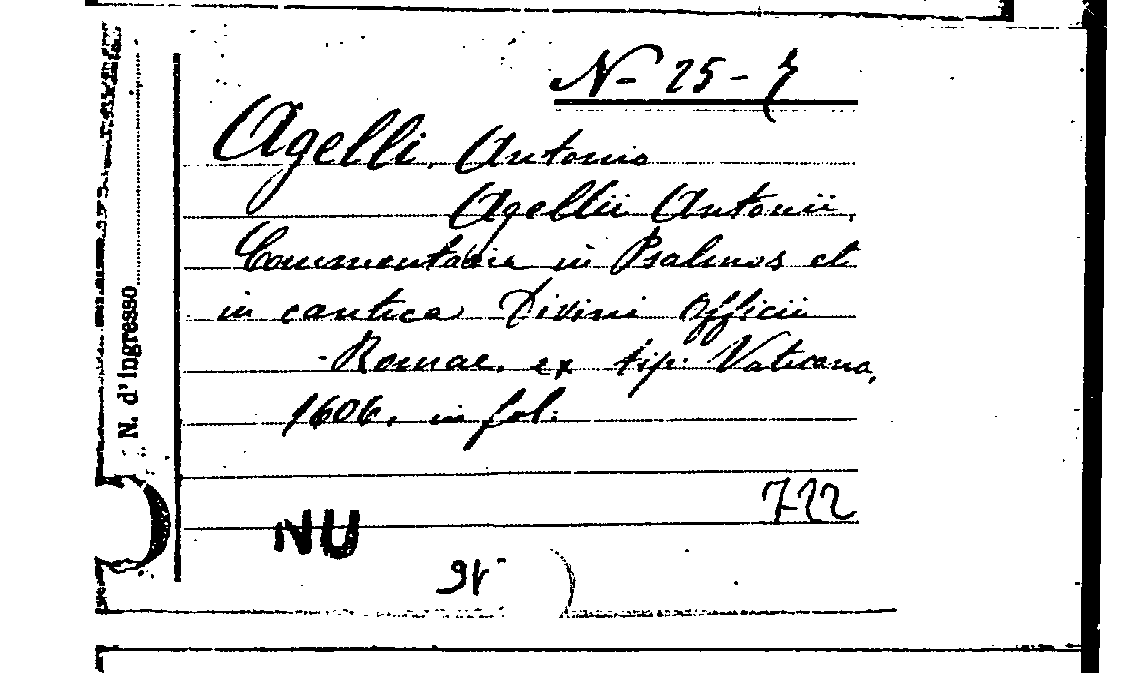 N- 25-7
Agelli, Antonio
Agellii Antonii,
Commentaria in Psalmos et
in cantica Divini Officii
- Romae. ex tip. Vaticana,
1606. in fol.
722
NU
N. d'ingresso